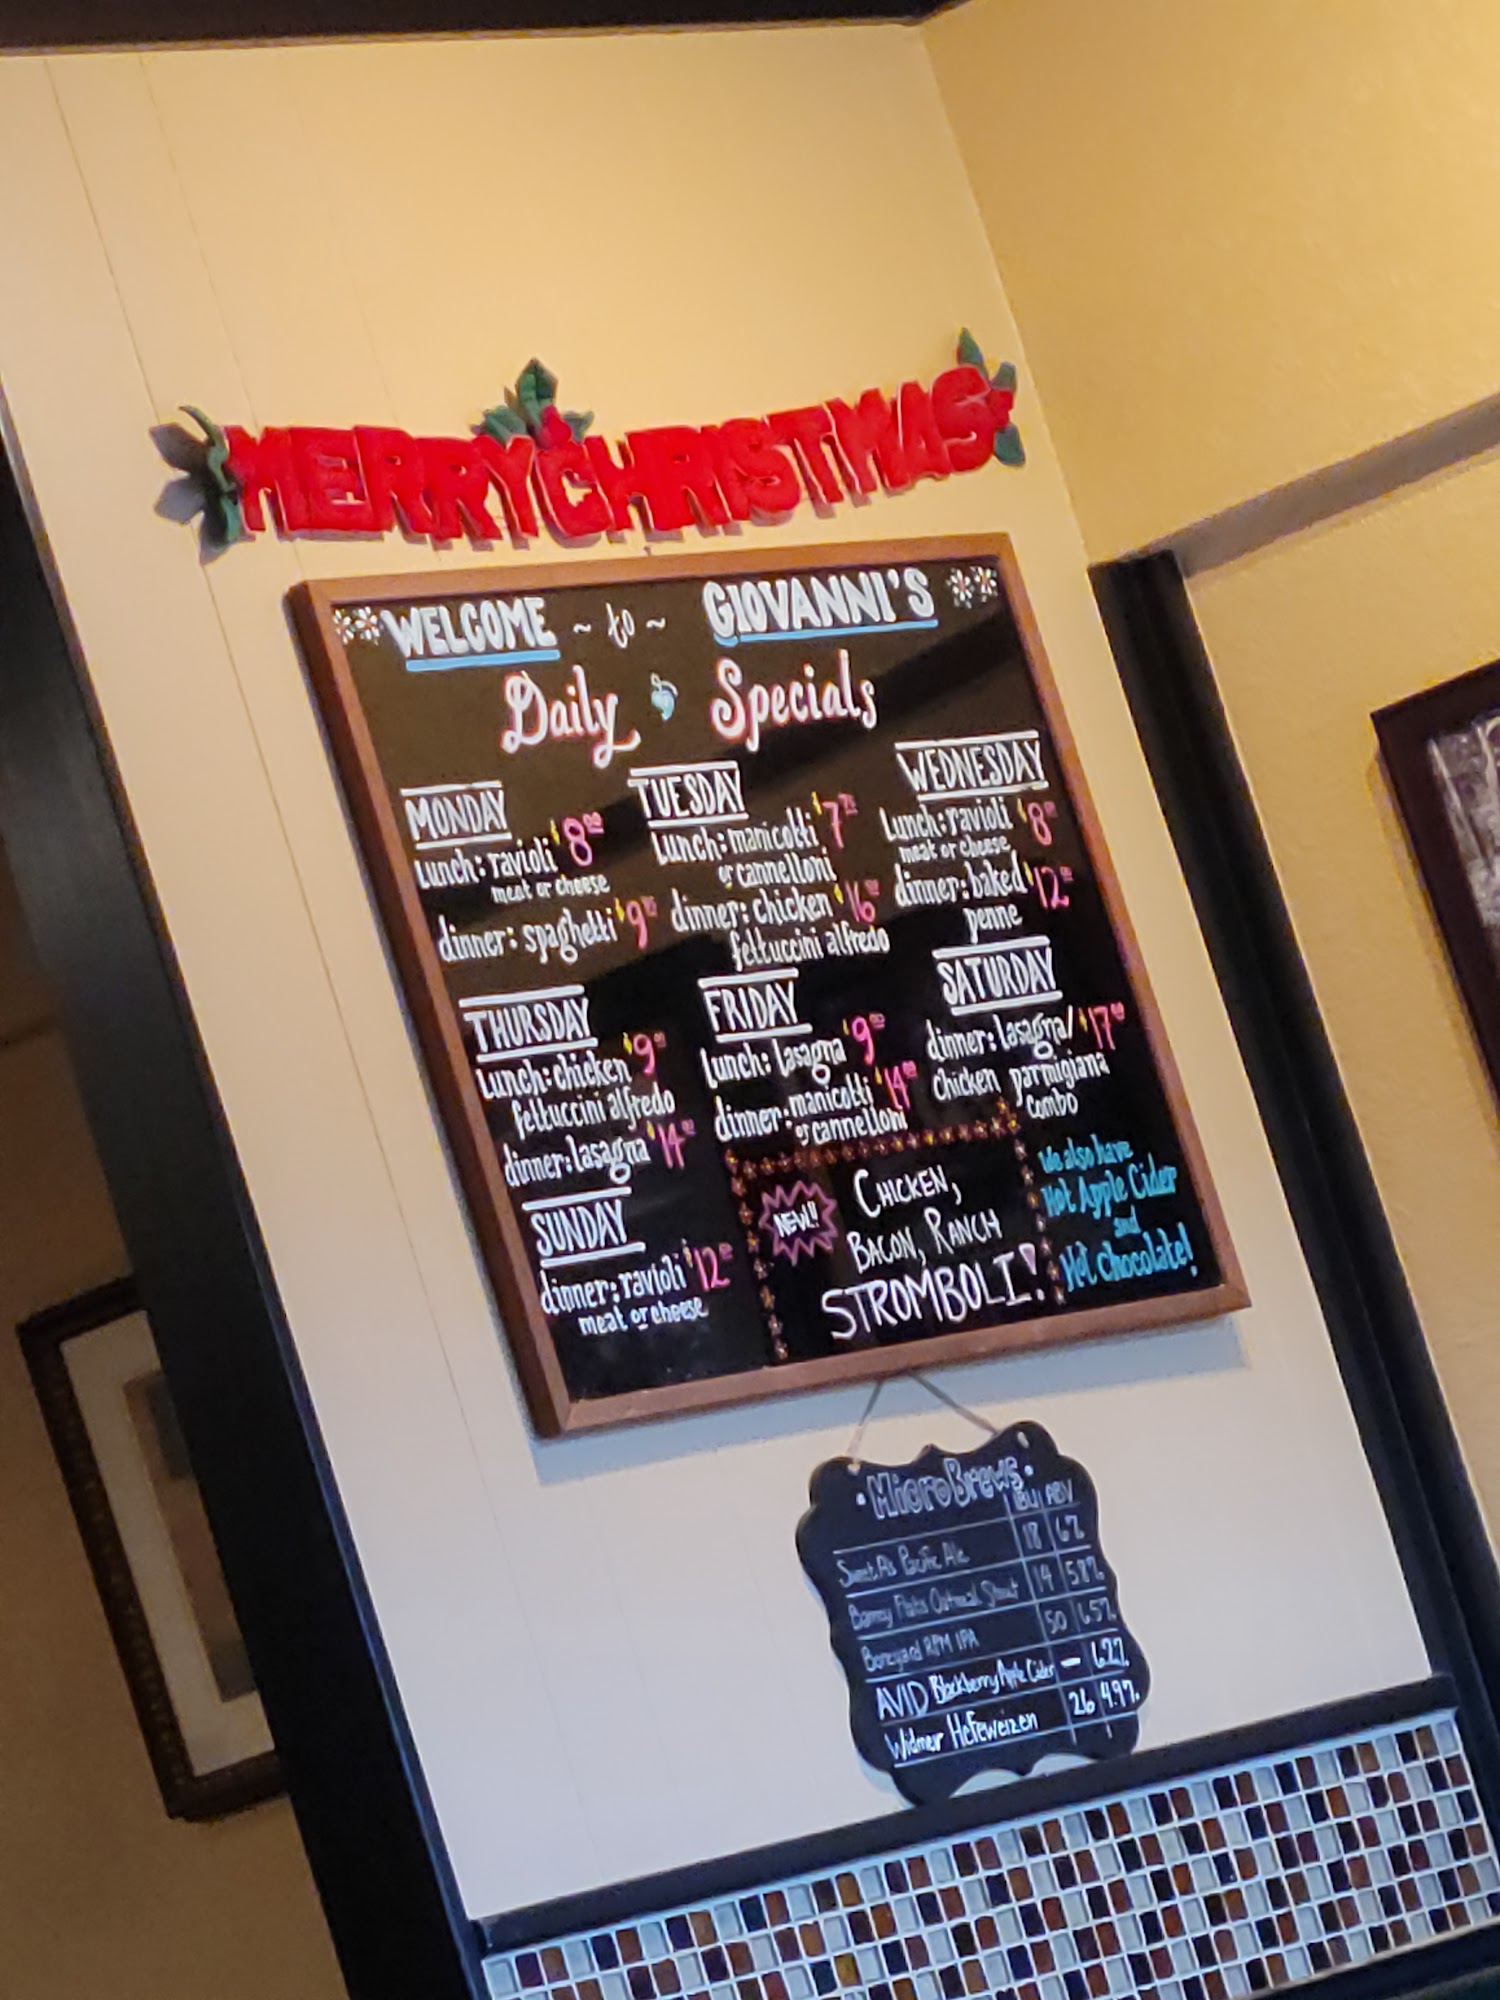 MERRY CHRISTMAS
WELCOME ~ to ~ GIOVANNI'S
Daily Specials
MONDAY
Lunch: ravioli $8.00
meat or cheese
dinner: spaghetti $9
TUESDAY
Lunch: manicotti $7
or cannelloni
dinner: chicken $16
fettuccini alfredo
WEDNESDAY
Lunch: ravioli $8
meat or cheese
dinner: baked $12
penne
THURSDAY
Lunch: chicken $9
fettuccini alfredo
dinner: lasagna $14
FRIDAY
Lunch: lasagna $9
dinner: manicotti $14
or cannelloni
SATURDAY
dinner: lasagna/ $17
chicken parmigiana
combo
SUNDAY
dinner: ravioli $12
meat or cheese
NEW!!
CHICKEN,
BACON, RANCH
STROMBOLI!
We also have
Hot Apple Cider
and
Hot chocolate!
Micro Brews
IBU ABV
Sweet As Pacific Ale 18 6%
Barney Flats Oatmeal Stout 14 5.8%
Boneyard RPM IPA 50 6.5%
AVID Blackberry Apple Cider — 6.2%
Widmer Hefeweizen 26 4.9%